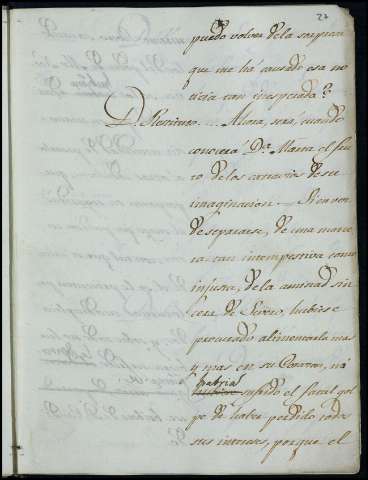 27
puedo volver de la sorpresa
que me há causado esa no
ticia tan inesperada?
D. Restituto.... Ahora, será, cuando
conocerá Dª. Maria el fru
to de los extravios de su
imaginacion.... Si en vez
de separarse, de una mane
ra tan intempestiva como
injusta, de la amistad sin
cera de Severo, hubiese
procurado alimentarla mas
y mas en su Corazon, nó
habria
hubiera sufrido el fatal gol
pe de haber perdido todos
sus intereses, porque el